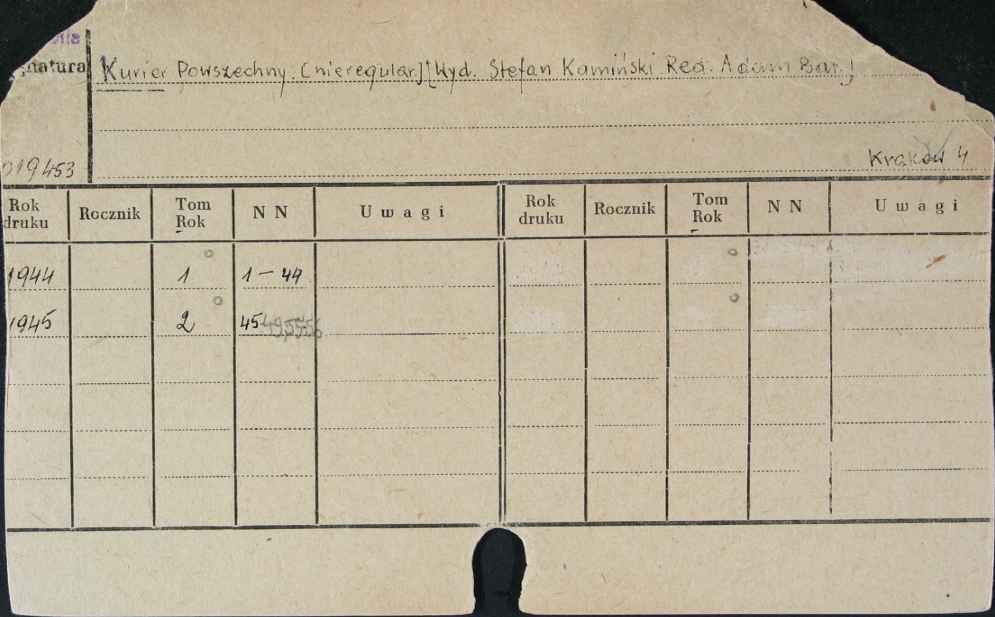 Kurier Powszechny. [nieregular.] [Wyd. Stefan Kamiński Red. Adam Bar.]
Kraków 4
19453
Rok druku Rocznik Tom Rok NN Uwagi Rok druku Rocznik Tom Rok NN Uwagi
1944 1 1-44
1945 2 45